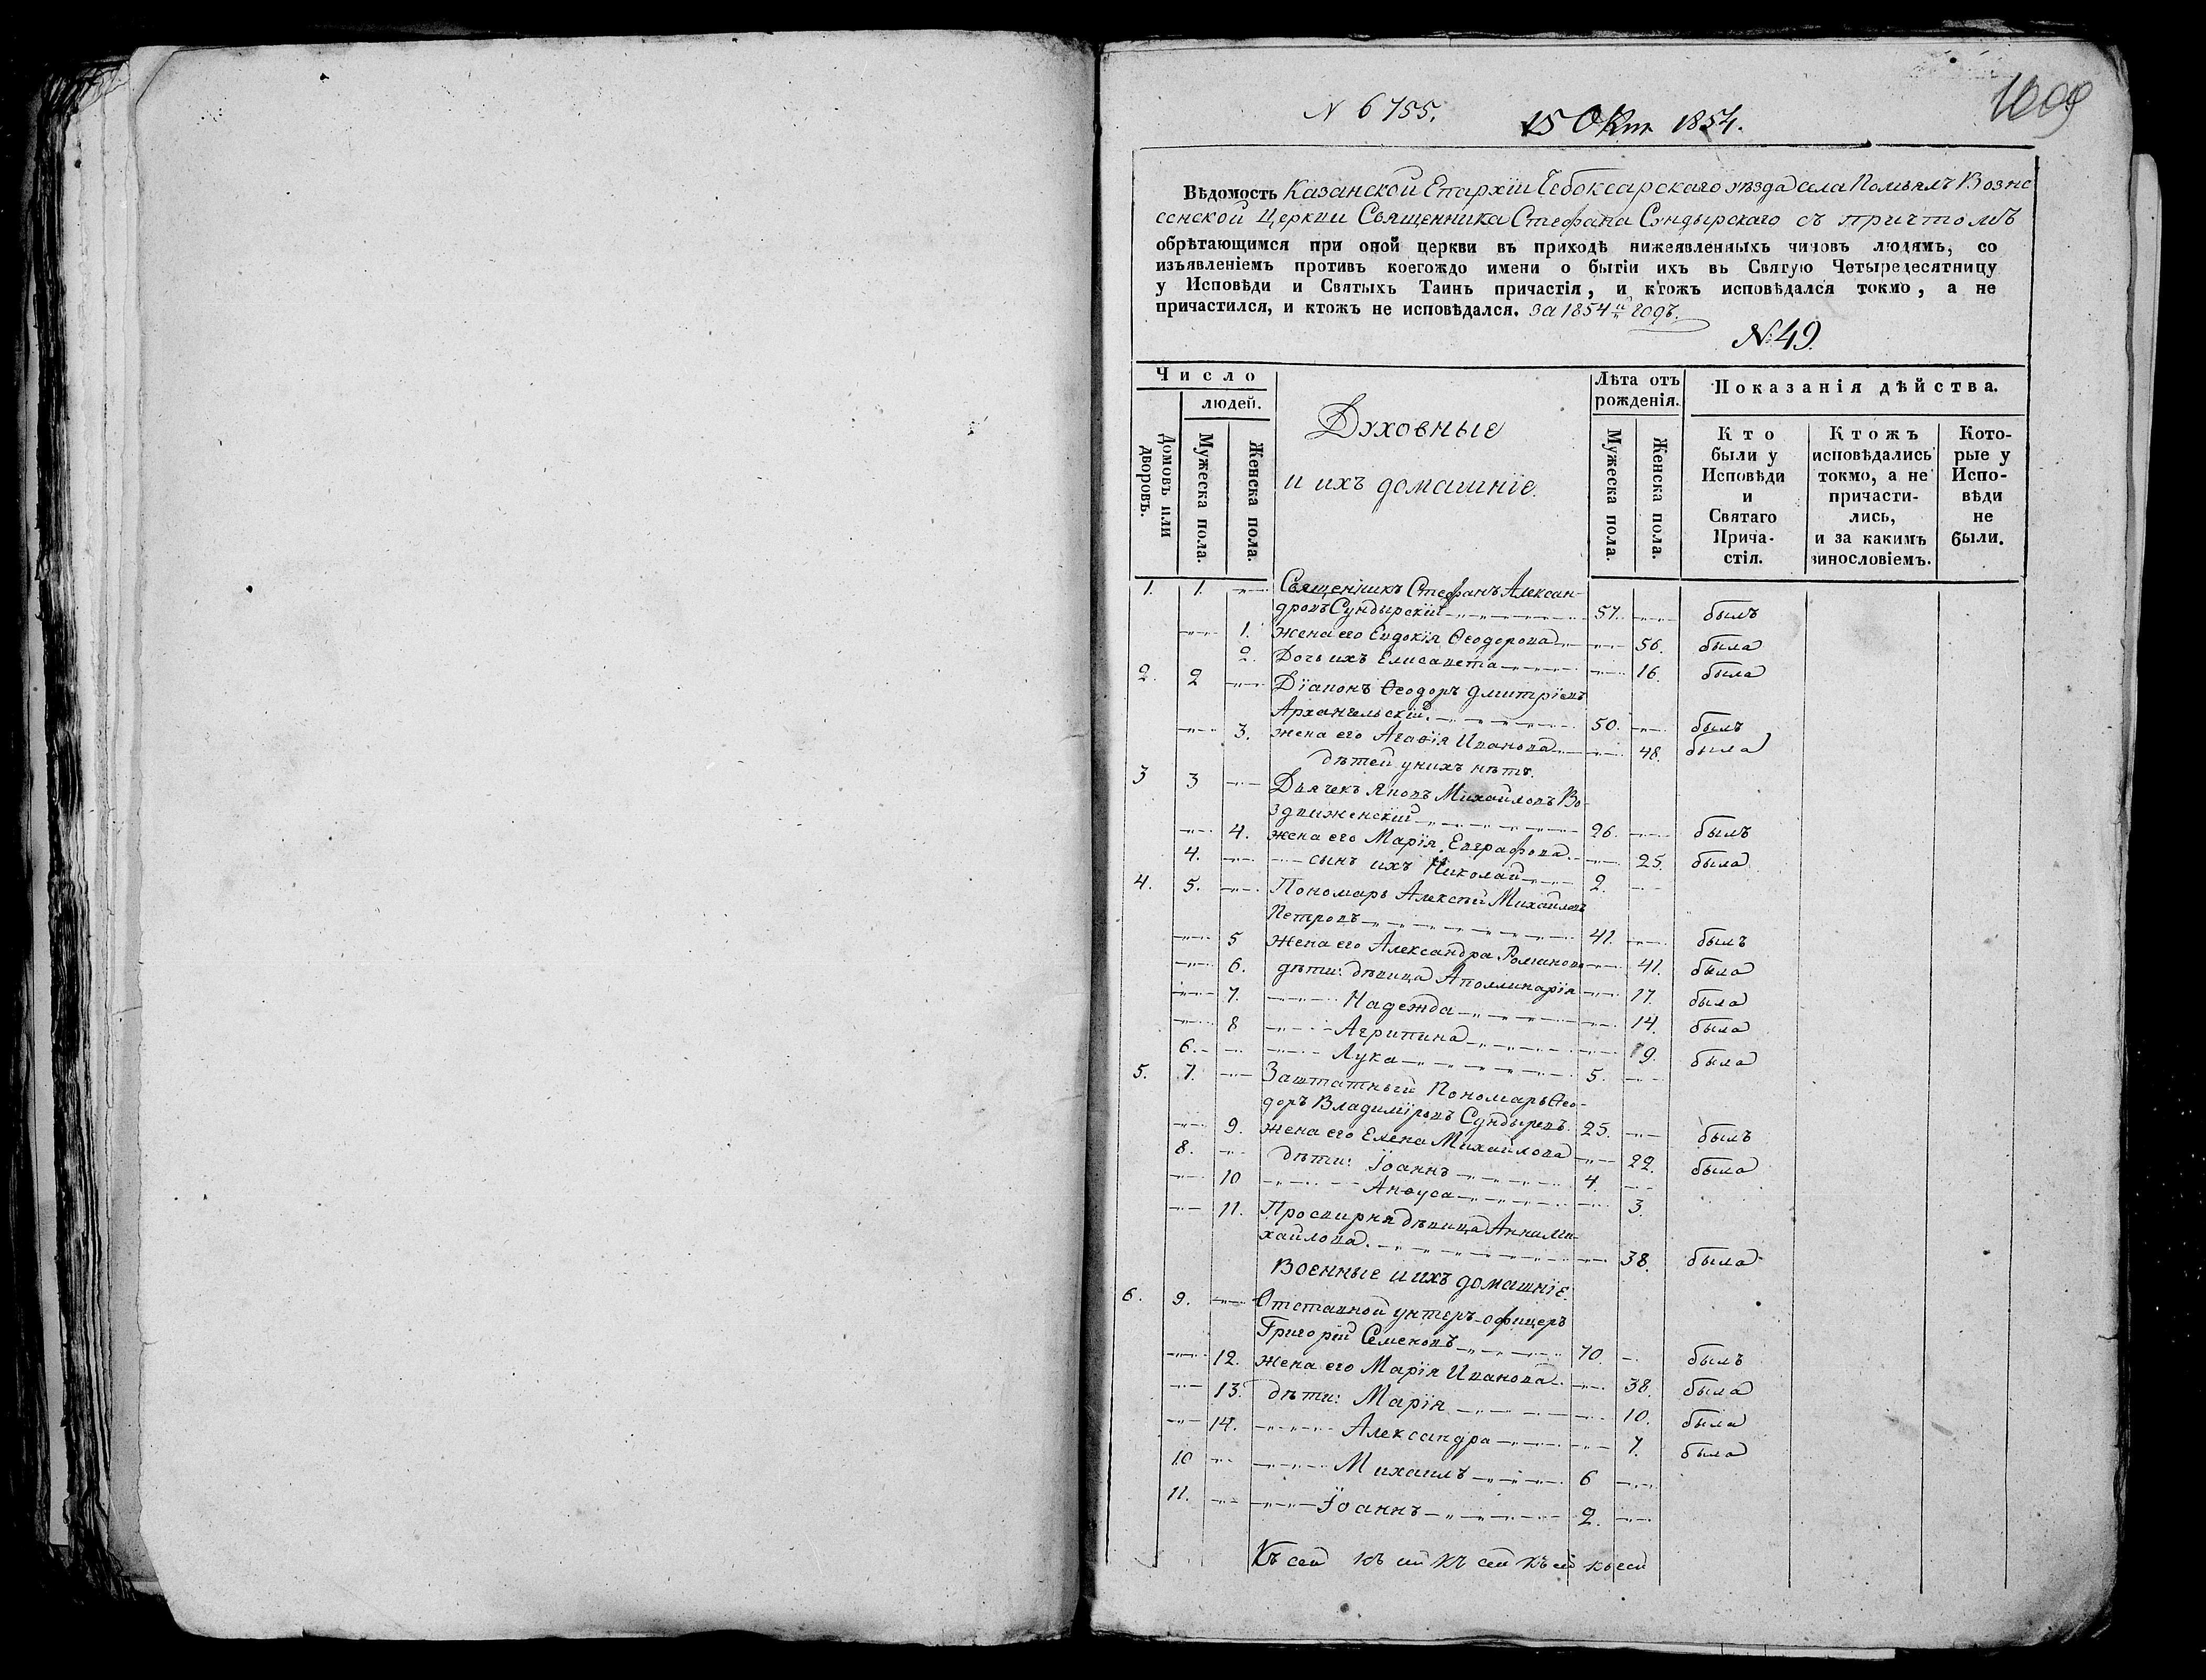 1009
N 6755.
15 Окт 1854.
Вѣдомость Казанской Епархіи Чебоксарскаго уѣзда села Помьялъ Возне
сенской Церкви Священника Стефана Сундырскаго съ причтомъ
обрѣтающимся при оной церкви въ приходѣ нижеявленныхъ чиновъ людямъ, со
изъявленіемъ противъ коегождо имени о бытіи ихъ въ Святую Четыредесятницу
у Исповѣди и Святыхъ Таинъ причастія, и ктожъ исповѣдался токмо, а не
причастился, и ктожъ не исповѣдался. за 1854й годъ.
№ 49.
Число
людей.
Домовъ или дворовъ.
Мужеска пола.
Женска пола.
Духовные
и ихъ домашніе.
Лѣта отъ рожденія.
Мужеска пола.
Женска пола.
Показанія дѣйства.
Кто были у Исповѣди и Святаго Причастія.
Ктожъ исповѣдались токмо, а не причастились, и за какимъ винословіемъ.
Которые у Исповѣди не были.
1. 1. Священникъ Стефанъ Алексан-
дровъ Сундырскій 57. былъ
1. жена его Евдокія Ѳеодорова 56. была
2. Дочь ихъ Елисавета 16. была
2. 2 Діаконъ Ѳеодоръ Дмитріевъ
Архангельскій 50. былъ
3. жена его Агаѳія Иванова 48. была
дѣтей у нихъ нѣтъ.
3 3 Дьячекъ Яковъ Михайловъ Во-
здвиженскій 26. былъ
4. жена его Марія Евграфова 25. была
4. сынъ ихъ Николай 2.
4. 5. Пономарь Алексѣй Михайловъ
Петровъ 41. былъ
5 жена его Александра Романова 41. была
6. дѣти: дѣвица Аполлинарія 17. была
7. Надежда 14. была
8 Агрипина 9. была
6. Лука 5.
5. 7. Заштатный Пономарь Ѳео-
доръ Владиміровъ Сундыревъ 25. былъ
9. жена его Елена Михайлова 22. была
8. дѣти: Іоаннъ 4.
10 Анѳуса 3.
11. Просвирня дѣвица Анна Ми-
хайлова 38. была
Военные и ихъ домашніе.
6. 9. Отставной унтеръ-офицеръ
Григорій Семеновъ 70. былъ
12. жена его Марія Иванова 38. была
13. дѣти: Марія 10. была
14. Александра 7. была
10 Михаилъ 6
11. Іоаннъ 2.
Къ сей къ сей къ сей къ сей